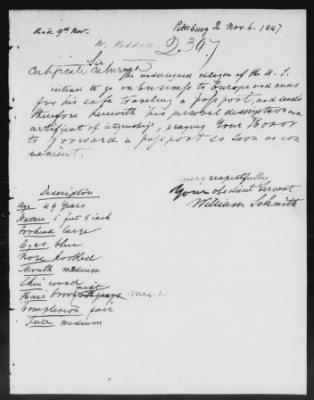 Recd 9th Nov.
Pittsburg Pa Nov. 6. 1847
W. Riddall
2.347
Certificate returned
Sir
The undersigned citizen of the U. S.
intend to go on business to Europe and needs
for his safe traveling a passport, and sends
therefore herewith his personal description and a
certificat of citizenship, praying Your Honor
to forward a passport so soon as con
venient.
very respectfully
Your obedient servant
William Schmith
Description
Age 49 Years
Stature 5 feet 8 inch
Forhead large
Eyes blue
Nose hooked
Mouth medium
Chin round
Hair brown
Complexion fair
Face medium